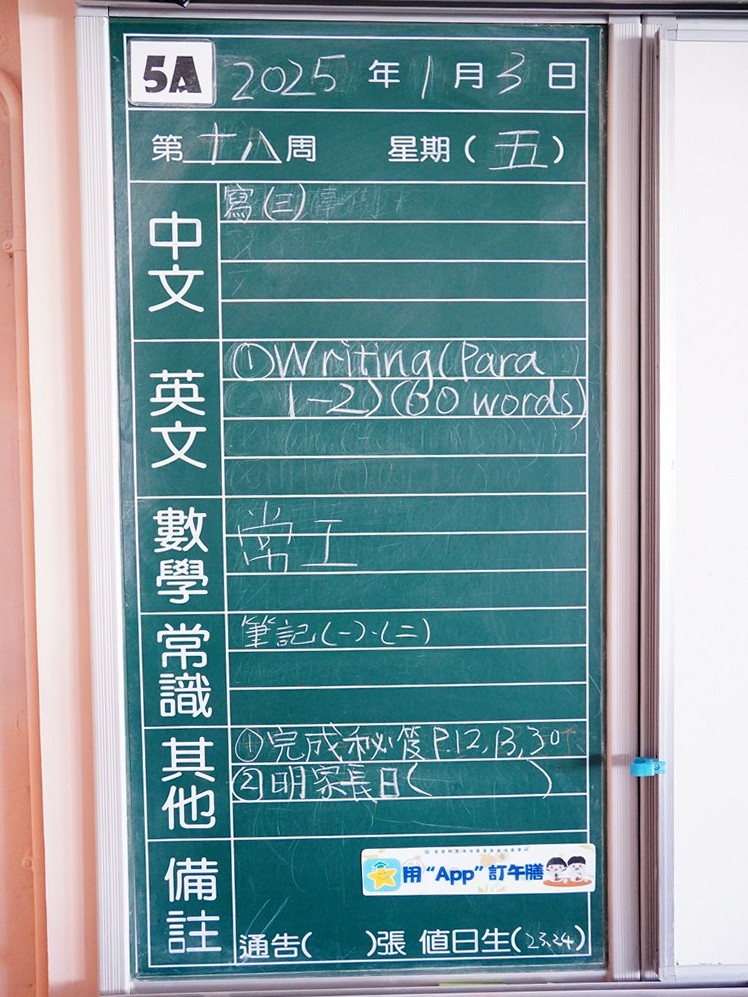 5A 2025 年 1 月 3 日
第 十八 周 星期 ( 五 )
中文
寫(三)
英文
①Writing(Para
1-2)(60 words)
數學
常工
常識
筆記(一)、(二)
其他
①完成秘笈P.12,13,30
②明家長日( )
備註
用“App”訂午膳
通告( )張 值日生(23,24)